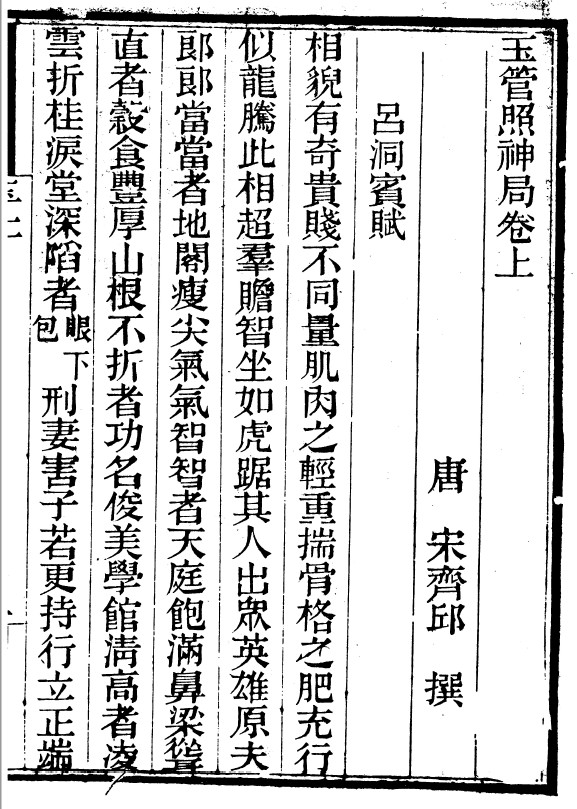 玉管照神局卷上
唐 宋齊邱 撰
呂洞賓賦
相貌有奇貴賤不同量肌肉之輕重揣骨格之肥充行
似龍騰此相超羣瞻智坐如虎踞其人出眾英雄原夫
郎郎當當者地閣瘦尖氣氣智智者天庭飽滿鼻梁聳
直者穀食豐厚山根不折者功名俊美學館清高者凌
雲折桂淚堂深陷者眼下包刑妻害子若更持行立正端